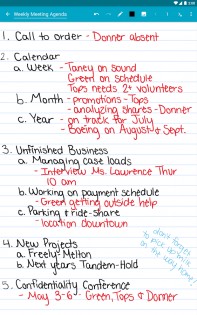 Weekly Meeting Agenda
1. Call to order - Donner absent
2. Calendar
a. Week - Taney on sound
Green on schedule
Tops needs 2+ volunteers
b. Month - promotions - Tops
- analyzing shares - Donner
c. Year - on track for July
- Boeing on August & Sept.
3. Unfinished Business
a. Managing case loads
- Interview Ms. Lawrence Thur
10 am
b. Working on payment schedule
- Green getting outside help
c. Parking & ride-share
- location downtown
4. New Projects
a. Freely Melton
b. Next years Tandem-Hold
5. Confidentiality Conference
- May 3-6 Green, Tops & Donner
don't forget
to pick up milk
on the way home!